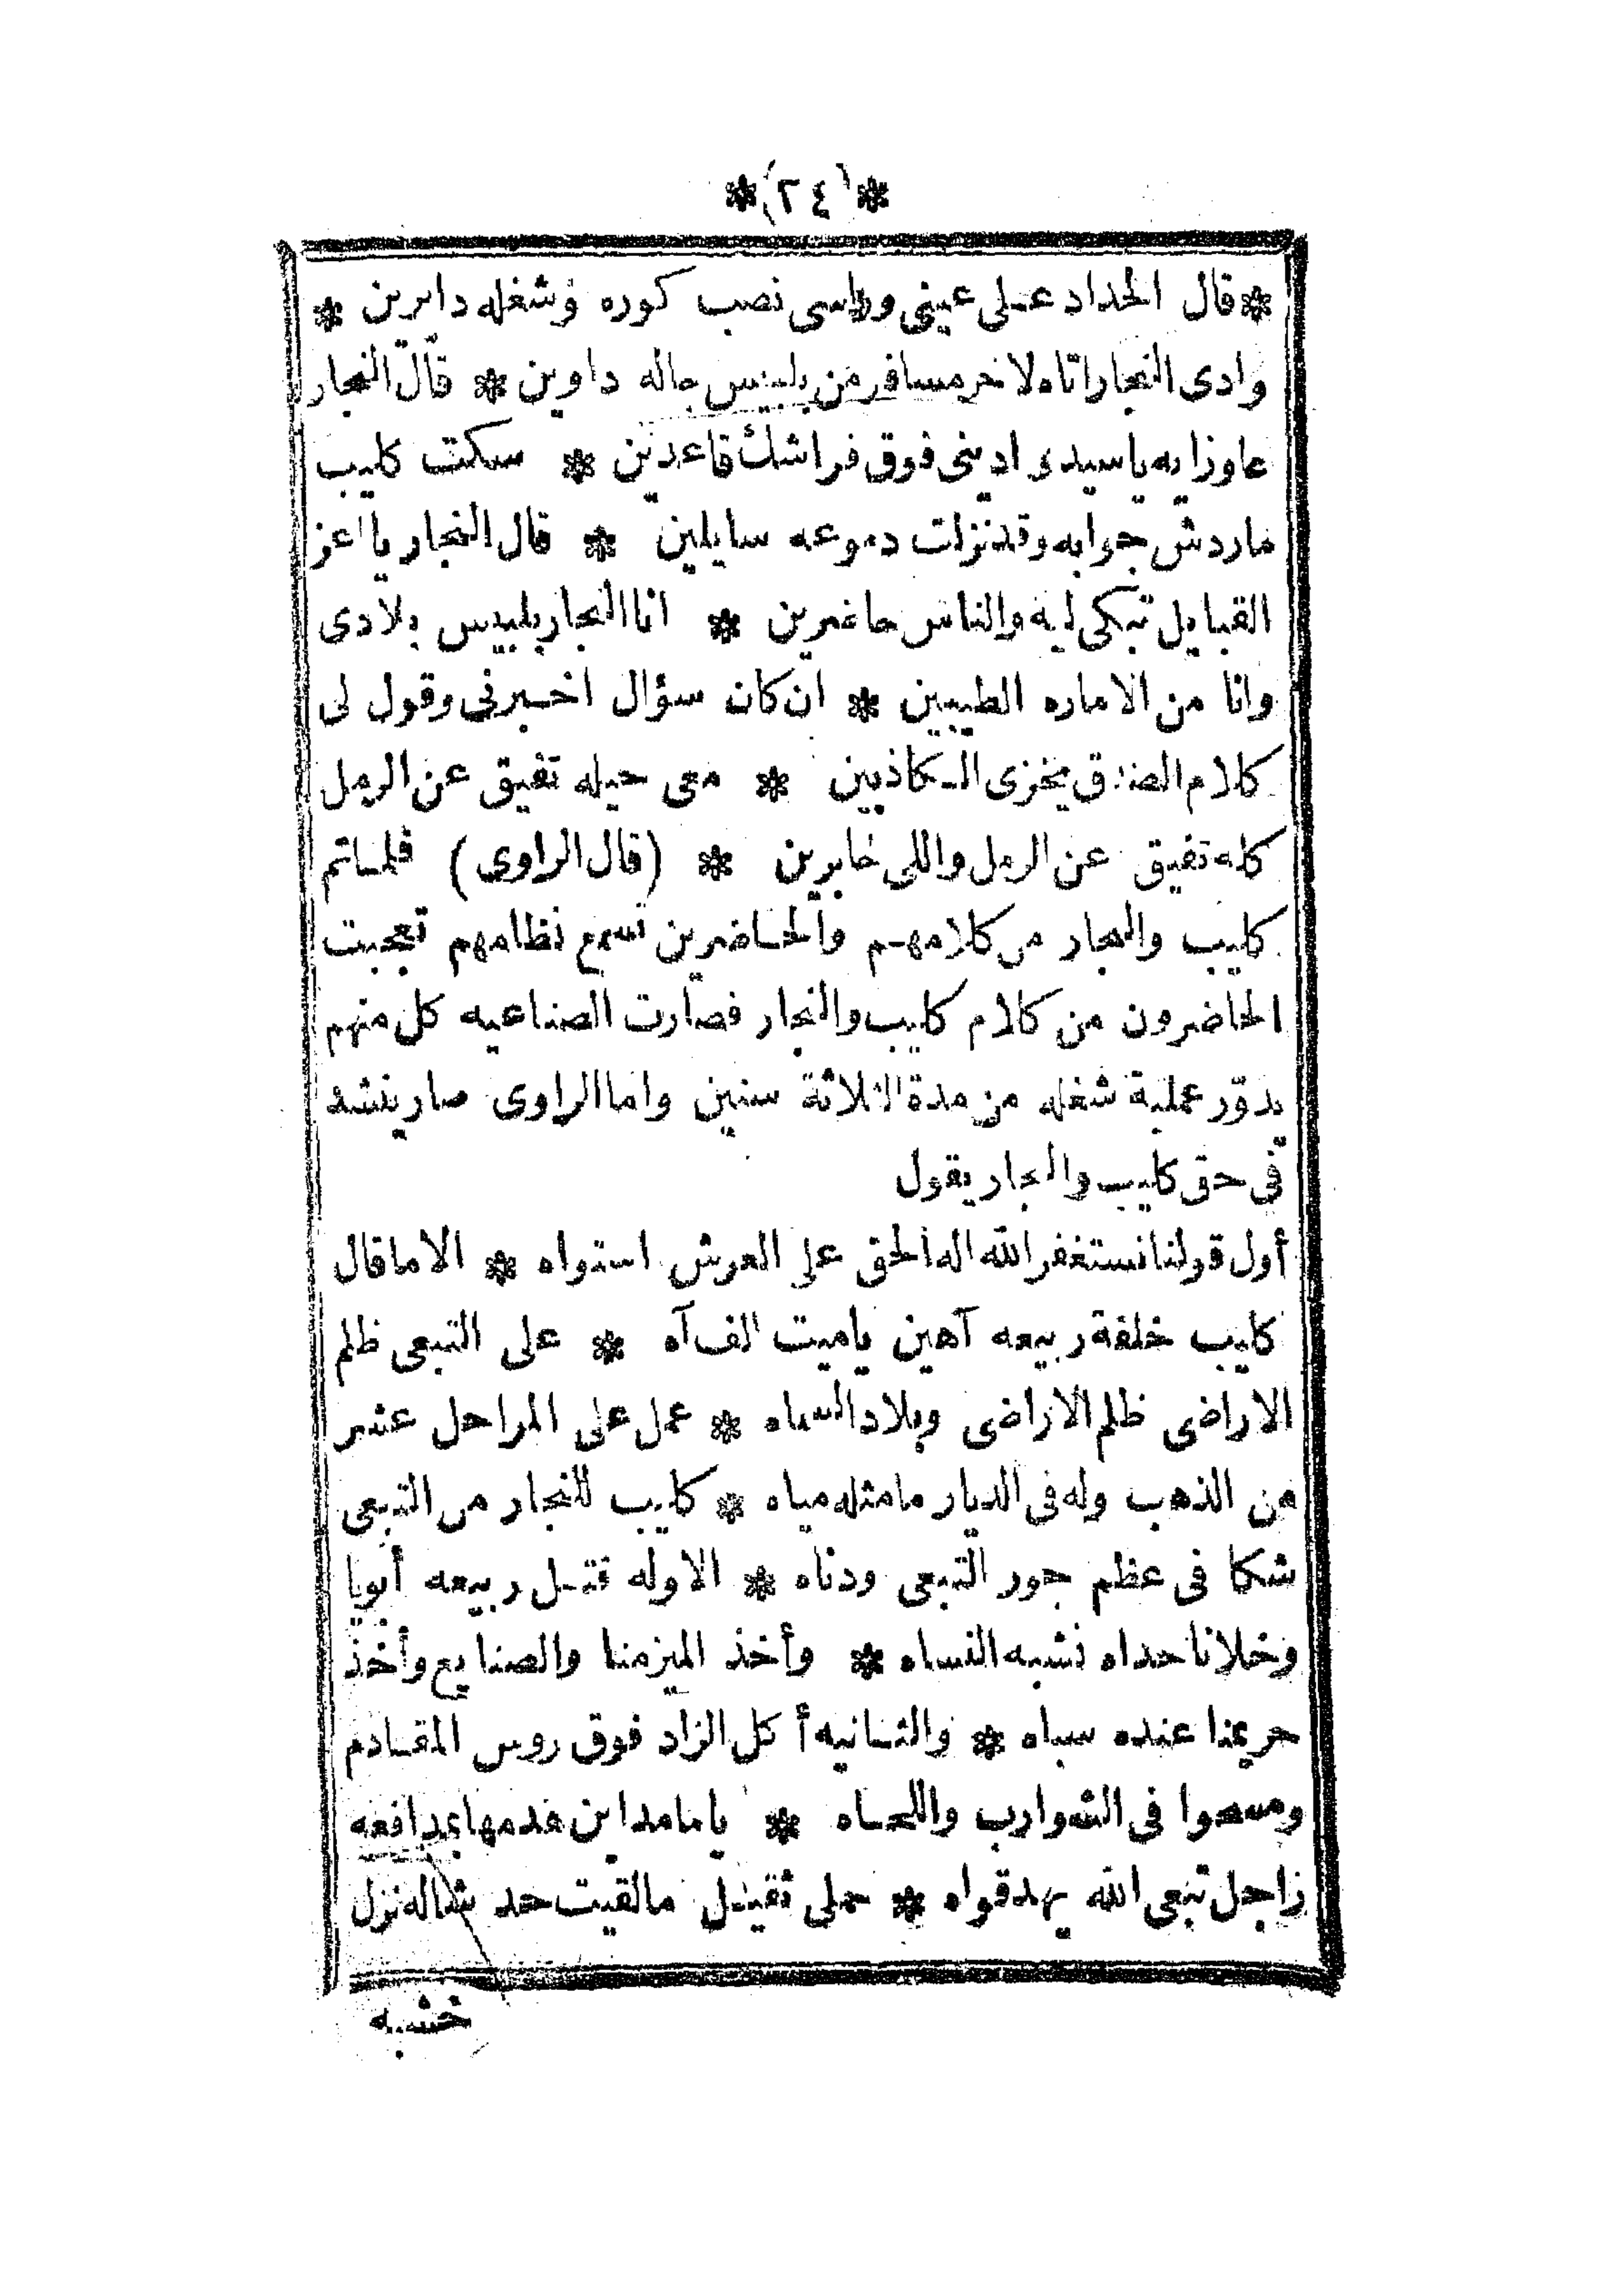 * (٢٤) *
* قال الحداد على عينى وراسى نصب كوره وشغله دايرين *
وادى النجار اتاه لاخر مسافر من بلبيس جاله داوين * قال النجار
عاوزايه ياسيدى ادينى فوق فراشك قاعدين * سكت كليب
ماردش جوابه وقد نزلت دموعه سايلين * قال النجار يا اعز
القبايل تبكى ليه والناس حاضرين * انا النجار بلبيس بلادى
وانا من الاماره الطيبين * ان كان سؤال اخبرنى وقول لى
كلام الصدق يخزى الكاذبين * معى حيله تفيق عن الرمل
كله تفيق عن الرمل واللى خابرين * (قال الراوى) فلما تم
كليب والنجار من كلامهم والحاضرين تسمع نظامهم تعجبت
الحاضرون من كلام كليب والنجار فصارت الصناعيه كل منهم
يدوّر عملية شغله من مدة الثلاثة سنين واما الراوى صار ينشد
فى حق كليب والنجار يقول
أول قولنا نستغفر الله اله الحق على العرش استواه * الا ماقال
كليب خلفة ربيعه آهين ياميت الف آه * على التبعى ظلم
الاراضى ظلم الاراضى وبلاد السماه * عمل على المراحل عشر
من الذهب وله فى الديار مامثله مياه * كليب للنجار من التبعى
شكا فى عظم جور التبعى ودناه * الاوله قتل ربيعه أبويا
وخلانا حداه نشبه النساه * وأخذ الميزمنا والصنايع وأخذ
حريمنا عنده سباه * والثانيه أكل الزاد فوق روس المقادم
ومسحوا فى الشوارب واللحاه * ياما مداين هدمها بمدافعه
راجل تبعى الله يهد قواه * حملى ثقيل مالقيت حد شاله نزل
خشبه